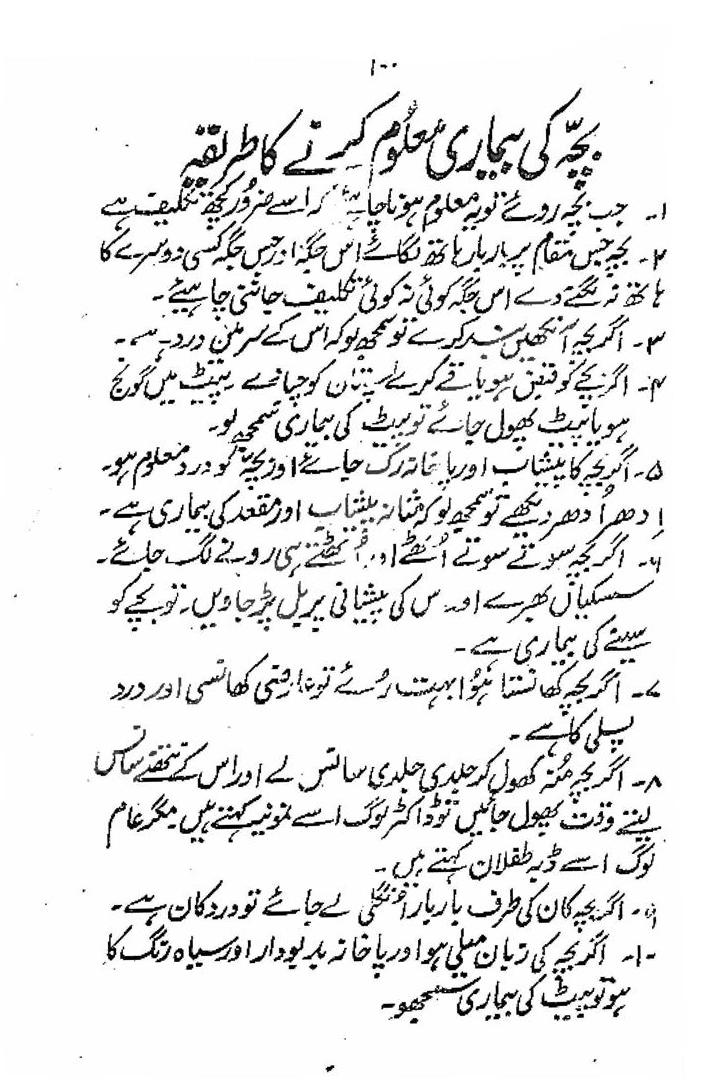 ۱۰۰
بچّہ کی بیماری معلوم کرنے کا طریقہ
۱۔ جب بچہ روئے تو یہ معلوم ہونا چاہئے کہ اسے ضرور کچھ تکلیف ہے
۲۔ بچہ جس مقام پر بار بار ہاتھ لگائے اس جگہ اور جس جگہ کسی دوسرے کا
ہاتھ نہ لگنے دے اس جگہ کوئی نہ کوئی تکلیف جاننی چاہیئے۔
۳۔ اگر بچہ آنکھیں بند کرے تو سمجھ لو کہ اس کے سر میں درد ہے۔
۴۔ اگر بچے کو قبض ہو یا قے کرے پستان کو چبائے پیٹ میں گونج
ہو یا پیٹ پھول جائے تو پیٹ کی بیماری سمجھ لو۔
۵۔ اگر بچہ کا پیشاب اور پاخانہ رک جائے اور بچہ کو درد معلوم ہو۔
اِدھر اُدھر دیکھے تو سمجھ لو کہ مثانہ پیشاب اور مقعد کی بیماری ہے۔
۶۔ اگر بچہ سوتے سوتے اُٹھے اور اُٹھتے ہی رونے لگ جائے۔
سسکیاں بھرے اور س کی پیشانی پر بل پڑ جاویں۔ تو بچے کو
سینے کی بیماری ہے۔
۷۔ اگر بچہ کھانستا ہوُا بہت روئے تو عارضی کھانسی اور درد
پسلی کا ہے۔
۸۔ اگر بچہ مُنہ کھول کر جلدی جلدی سانس لے اور اس کے نتھنے سانس
لیتے وقت پھول جائیں تو ڈاکٹر لوگ اسے نمونیہ کہتے ہیں۔ مگر عام
لوگ اسے ڈبہ طفلان کہتے ہیں۔
۹۔ اگر بچہ کان کی طرف بار بار اُنگلی لے جائے تو درد کان ہے۔
۱۰۔ اگر بچہ کی زبان میلی ہو اور پاخانہ بدبودار اور سیاہ رنگ کا
ہو تو پیٹ کی بیماری سمجھو۔